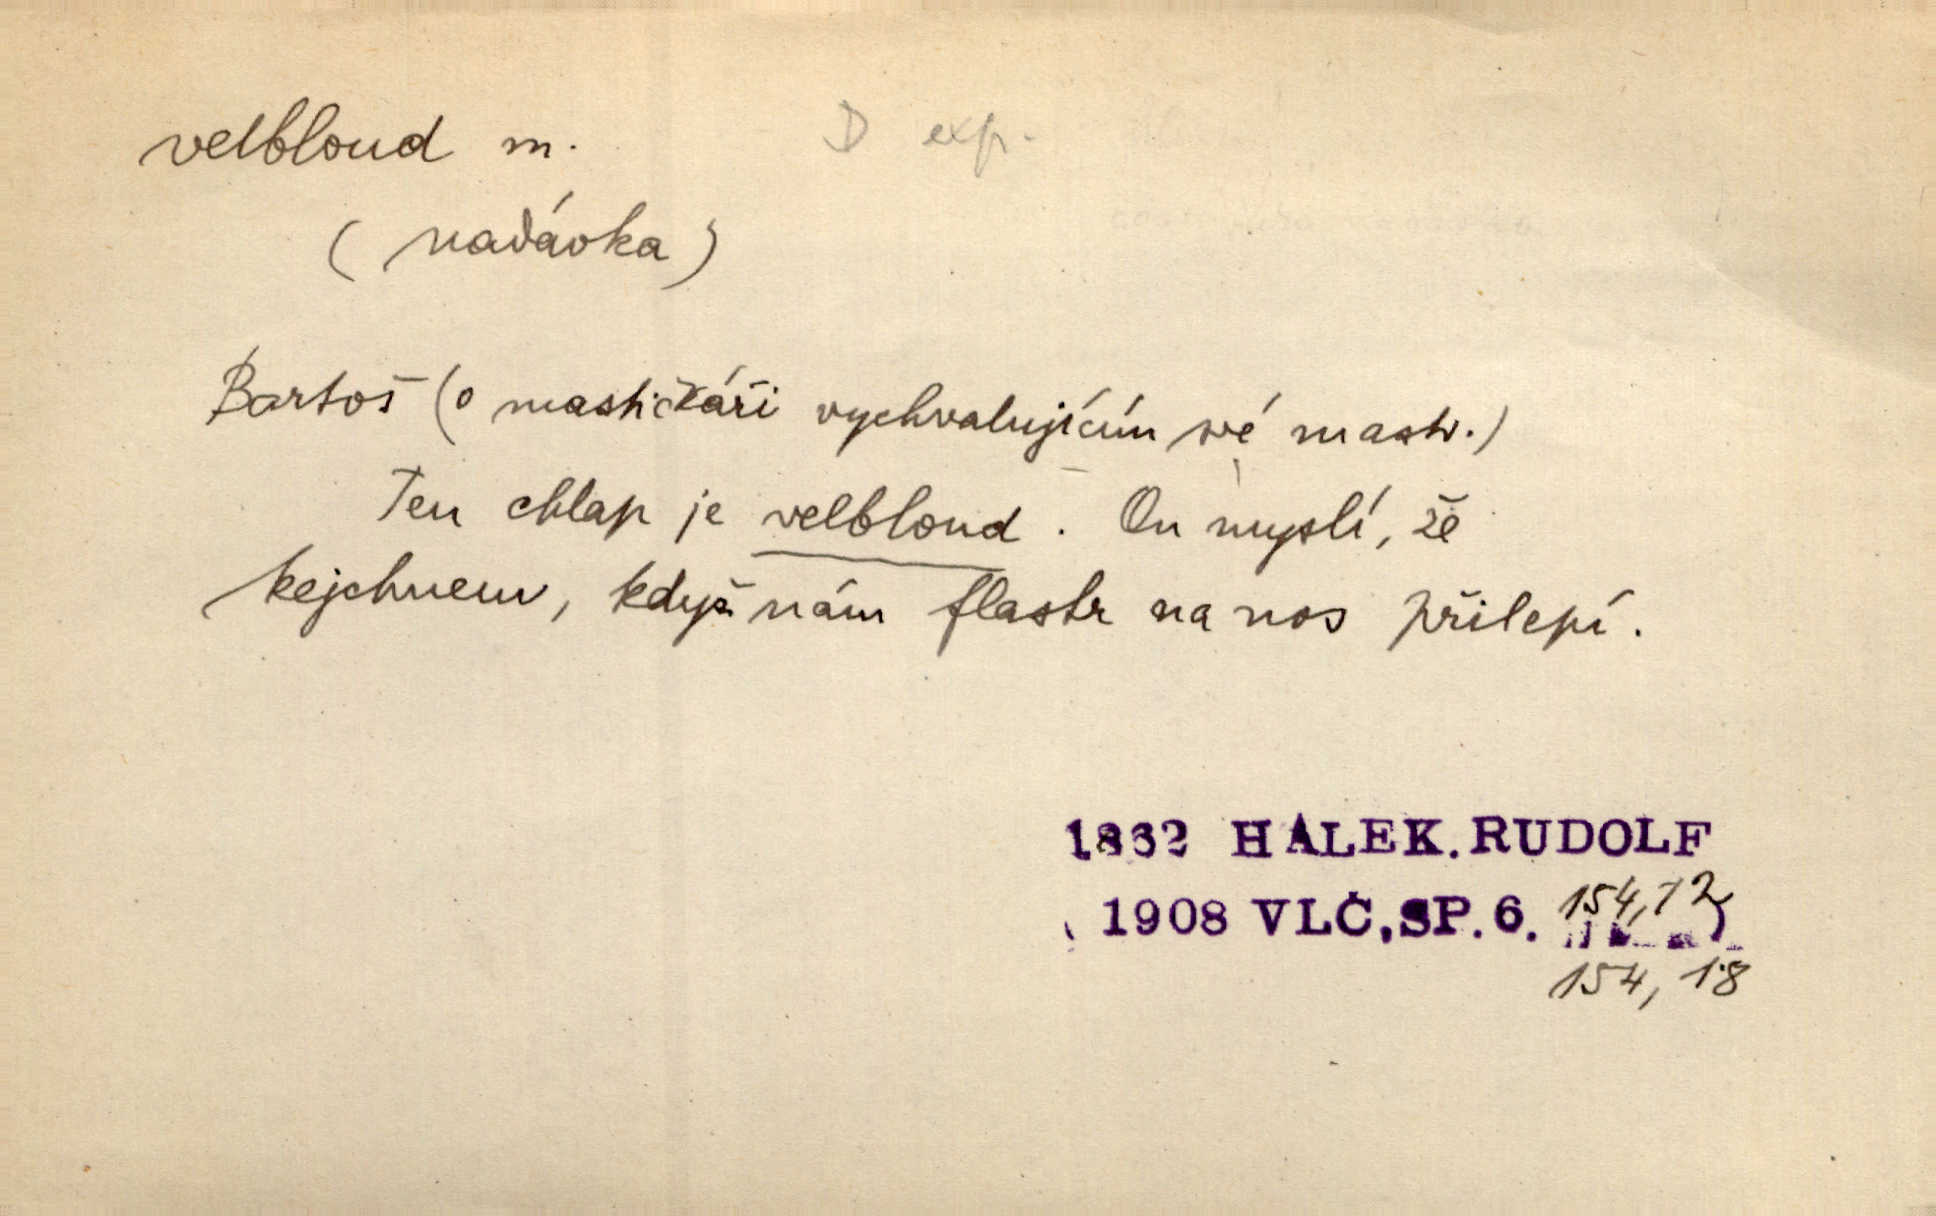 velbloud m. D exp.
(nadávka)
Bartoš (o mastičkáři vychvalujícím své masti.)
Ten chlap je velbloud. On myslí, že
kejchnem, když nám flastr na nos přilepí.
1862 HALEK. RUDOLF
1908 VLČ, SP. 6. 154, 12
154, 18